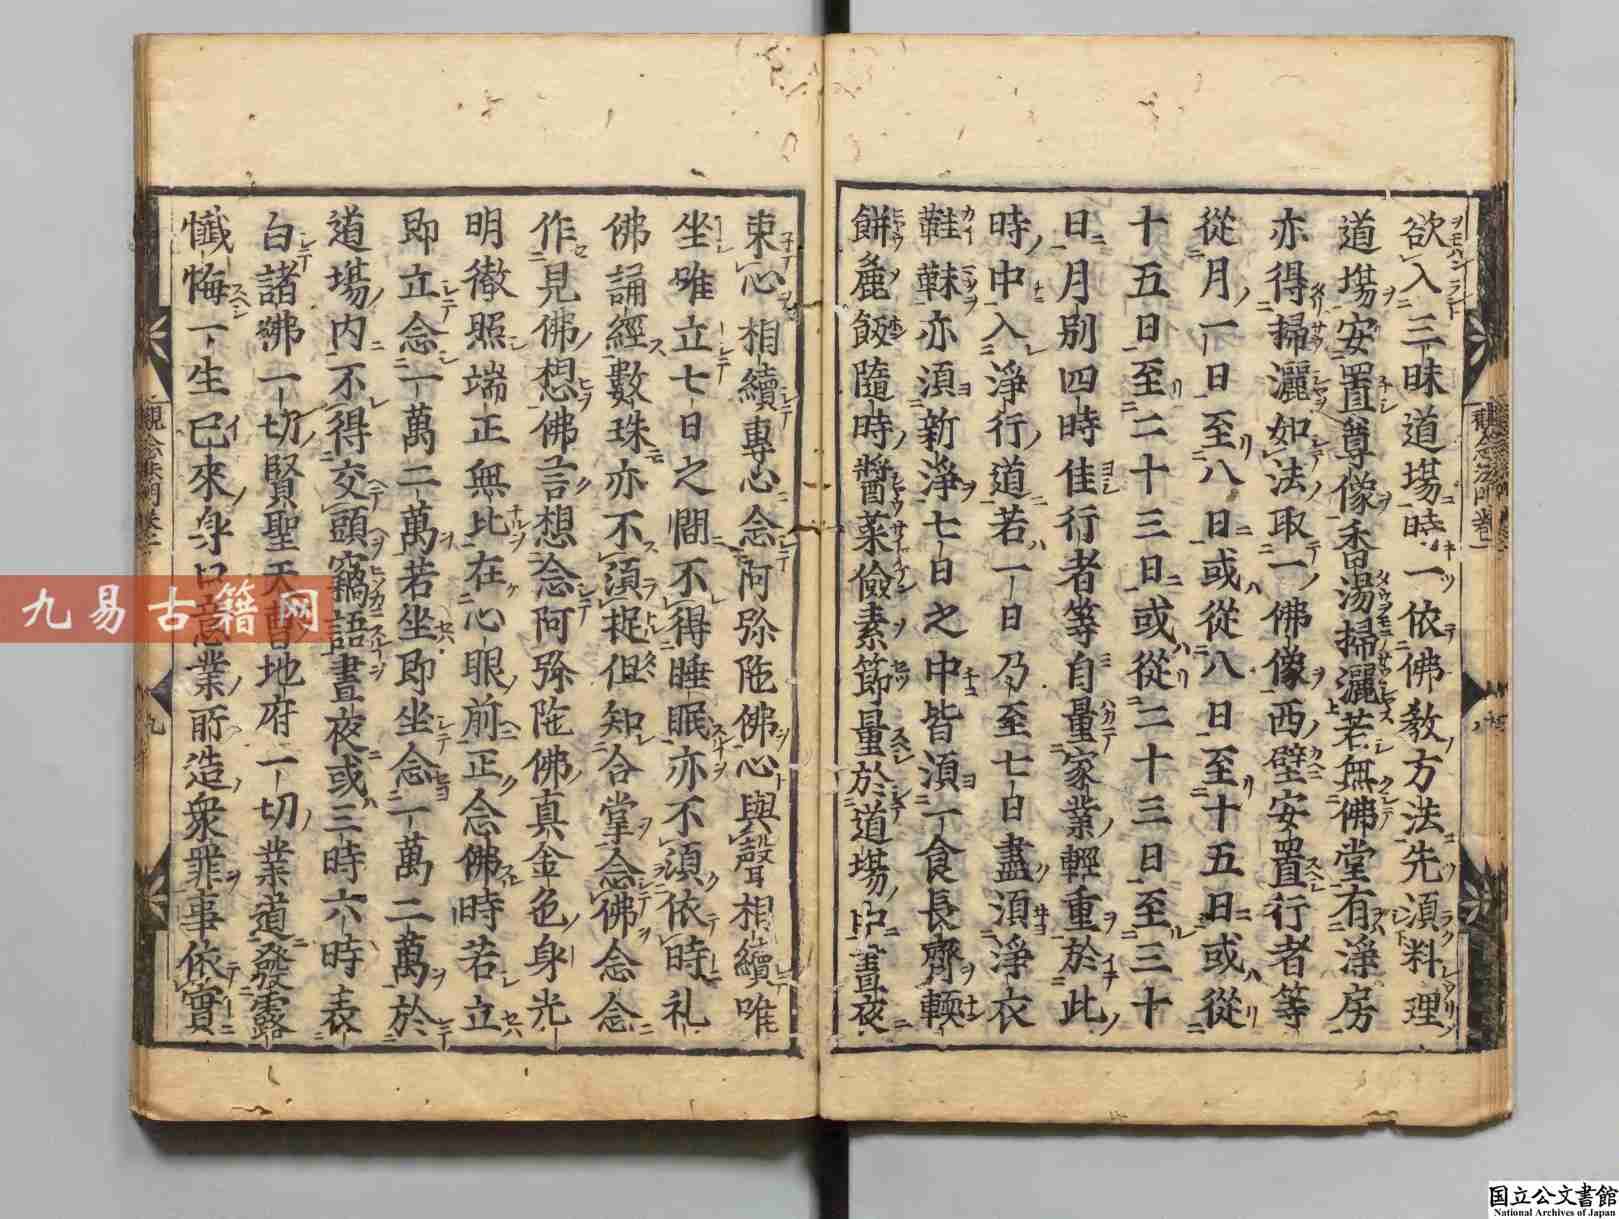 欲入三昧道場時一依佛教方法先湏料理
道場安置尊像香湯掃灑若無佛堂有淨房
亦得掃灑如法取一佛像西壁安置行者等
從月一日至八日或從八日至十五日或從
十五日至二十三日或從二十三日至三十
日月別四時佳行者等自量家業輕重於此
時中入淨行道若一日乃至七日盡湏淨衣
鞋靺亦湏新淨七日之中皆湏一食長齊輭
餅麁飯隨時醬菜儉素節量於道場中晝夜
束心相續專心念阿弥陁佛心與聲相續唯
坐唯立七日之間不得睡眠亦不湏依時礼
佛誦經數珠亦不湏捉但知合掌念佛念念
作見佛想佛言想念阿弥陁佛真金色身光
明徹照端正無比在心眼前正念佛時若立
即立念一萬二萬若坐即坐念一萬二萬於
道場内不得交頭竊語晝夜或三時六時表
白諸佛一切賢聖天曹地府一切業道發露
懺悔一生已來身口意業所造衆罪事依實
九易古籍网
国立公文書館
National Archives of Japan